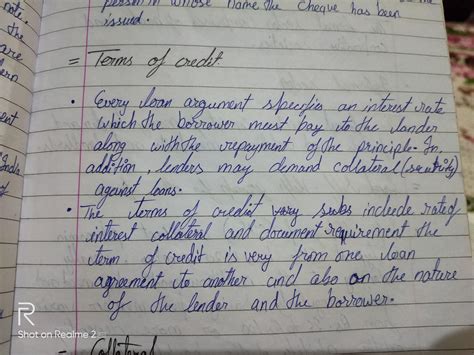 person in whose name the cheque has been
issued.
= Terms of credit
• Every loan argument specifies an interest rate
which the borrower must pay to the lander
along with the repayment of the principle. In
addition, lenders may demand collateral (security)
against loans.
• The terms of credit vary subs include rate of
interest collateral and document requirement the
term of credit is very from one loan
agreement to another and also on the nature
of the lender and the borrower.
= Collateral
R
Shot on Realme 2